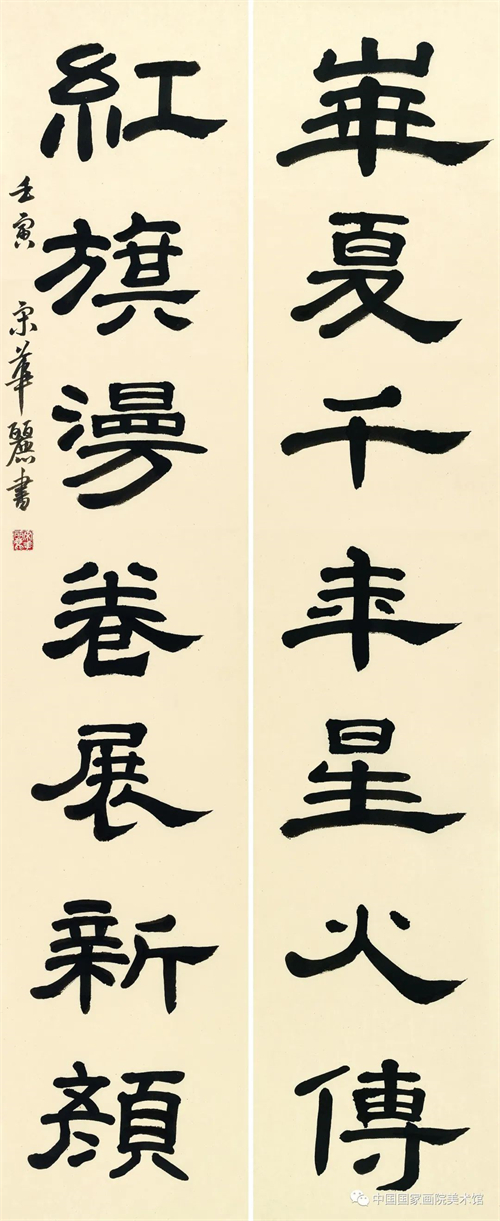 崋夏千年星火傳
紅旗漫卷展新顔
壬寅 宋華麗書
中国国家画院美术馆